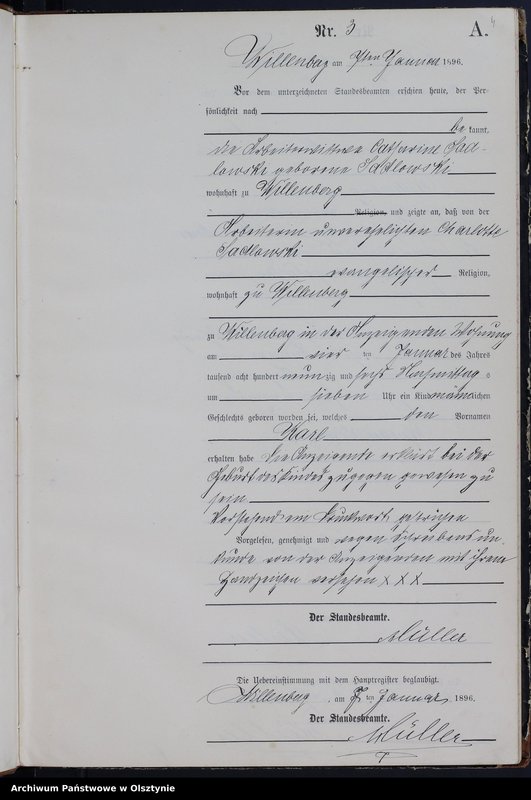 Nr. 3
A.
4
Willenberg am 7ten Januar 1896.
Vor dem unterzeichneten Standesbeamten erschien heute, der Per-
sönlichkeit nach
be kannt,
die Arbeiterwittwe Catharine Sad-
lowski geborene Sadlowski
wohnhaft zu Willenberg
Religion, und zeigte an, daß von der
Arbeiterin unverehelichten Charlotte
Sadlowski
evangelischer Religion,
wohnhaft zu Willenberg
zu Willenberg in der Anzeigenden Wohnung
am vier ten Januar des Jahres
tausend acht hundert neun zig und sechs Nachmittag s
um sieben Uhr ein Kind männlichen
Geschlechts geboren worden sei, welches den Vornamen
Karl
erhalten habe Die Anzeigende erklärt bei der
Geburt des Kindes zugegen gewesen zu
sein
Vorstehend ein Druckwort gestrichen
Vorgelesen, genehmigt und wegen Schreibens un-
kunde von der Anzeigenden mit ihrem
Handzeichen versehen XXX
Der Standesbeamte.
Müller
Die Uebereinstimmung mit dem Hauptregister beglaubigt.
Willenberg, am 7 ten Januar 1896.
Der Standesbeamte.
Müller
Archiwum Państwowe w Olsztynie